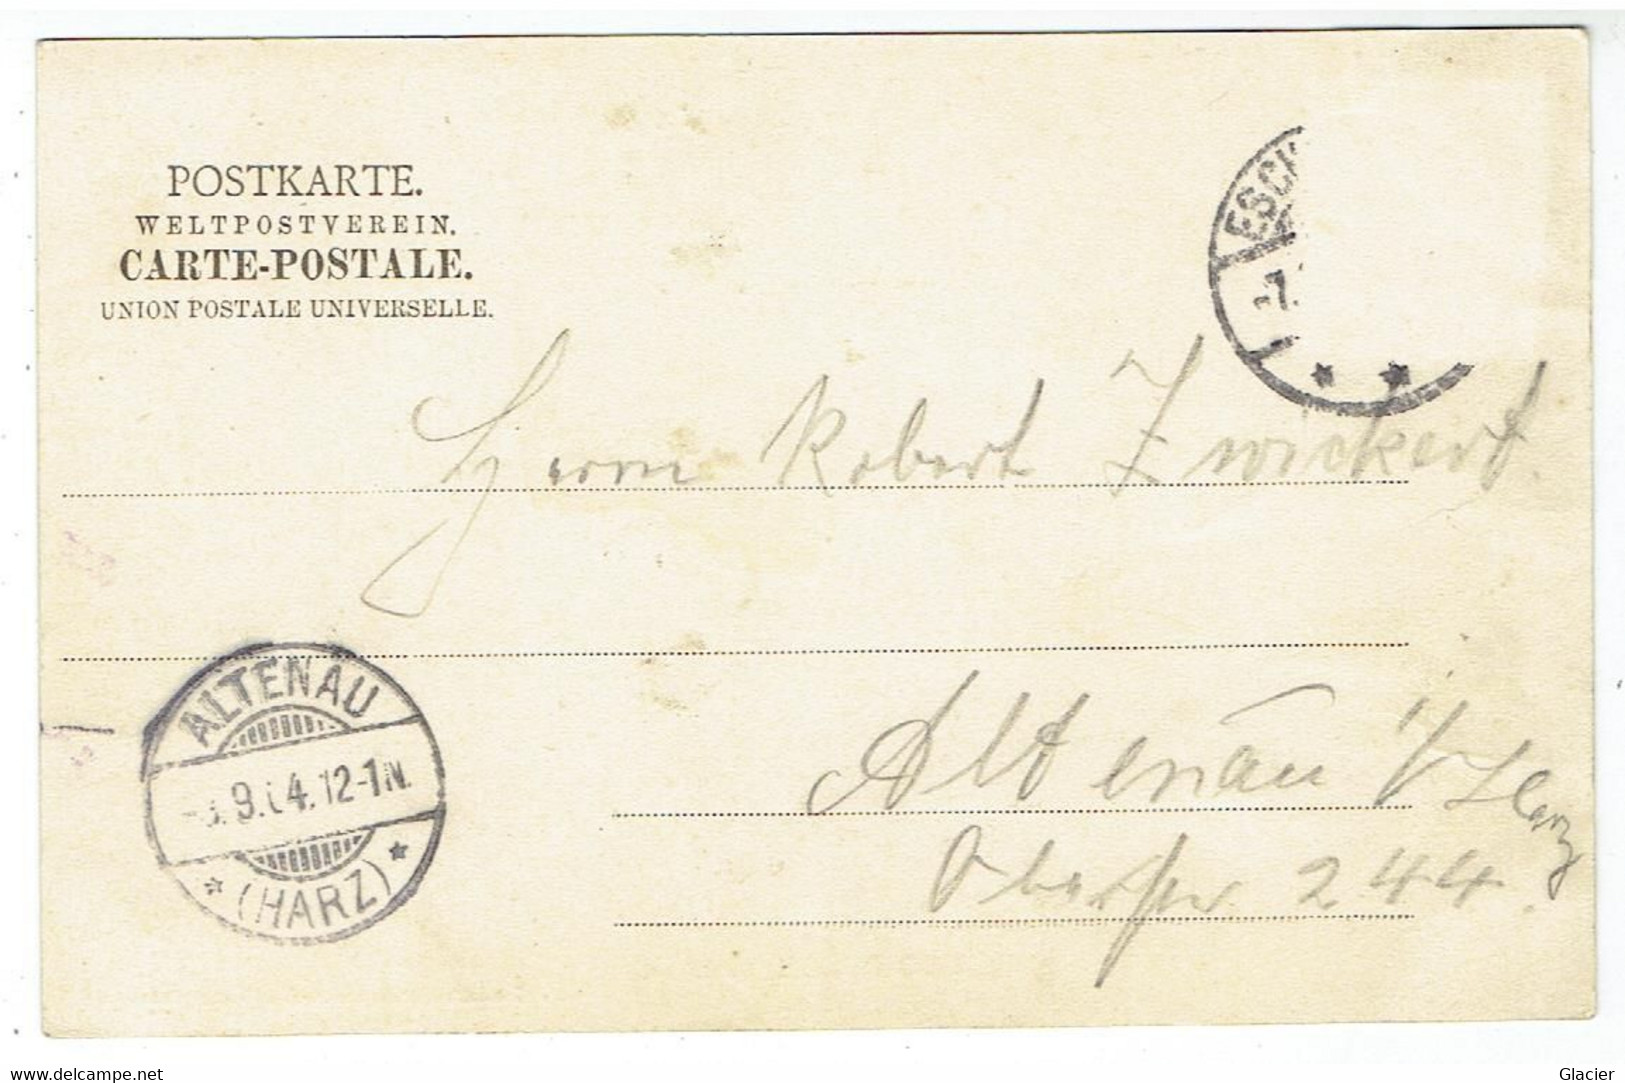 POSTKARTE.
WELTPOSTVEREIN.
CARTE-POSTALE.
UNION POSTALE UNIVERSELLE.
ESCH
-7.
Herrn Robert Zwickert.
Altenau i/Harz
Oberstr 244.
ALTENAU
.9.04.12-1N.
(HARZ)
www.delcampe.net
Glacier